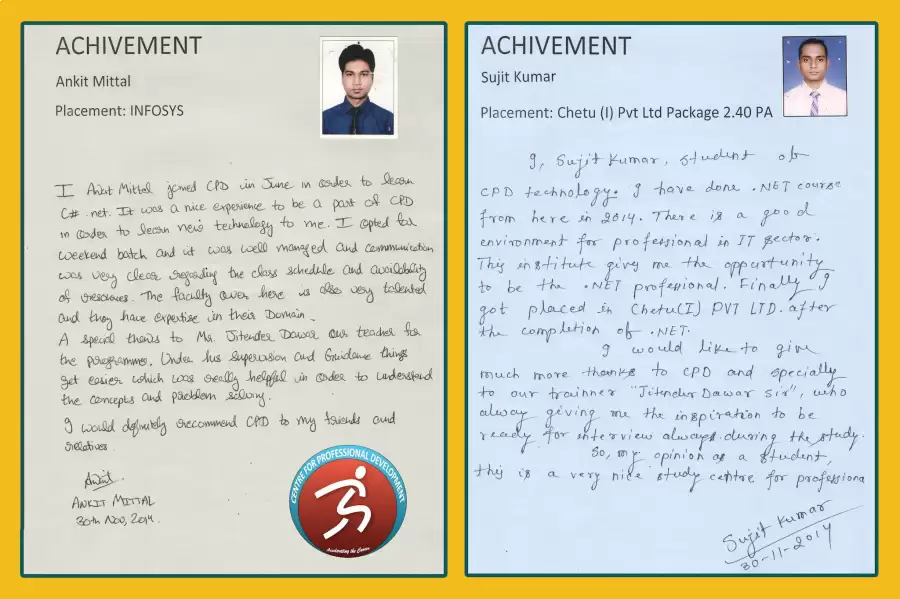 ACHIVEMENT
Ankit Mittal
Placement: INFOSYS
I Ankit Mittal joined CPD in June in order to learn
C# .net. It was a nice experience to be a part of CPD
in order to learn new technology to me. I opted for
weekend batch and it was well managed and communication
was very clear regarding the class schedule and availability
of resources. The faculty over here is also very talented
and they have expertise in their Domain.
A special thanks to Mr. Jitender Dawar our teacher for
the programme. Under his supervision and Guidance things
get easier which was really helpful in order to understand
the concepts and problem solving.
I would definitely recommend CPD to my friends and
relatives.
Ankit
ANKIT MITTAL
30th Nov, 2014.
CENTRE FOR PROFESSIONAL DEVELOPMENT
Accelerating the Career
ACHIVEMENT
Sujit Kumar
Placement: Chetu (I) Pvt Ltd Package 2.40 PA
I, Sujit Kumar, student of
CPD technology. I have done .NET course
from here in 2014. There is a good
environment for professional in IT sector.
This institute give me the oppurtunity
to be the .NET professional. Finally I
got placed in Chetu(I) PVT LTD. after
the completion of .NET.
I would like to give
much more thanks to CPD and specially
to our trainner "Jitender Dawar Sir", who
alway giving me the inspiration to be
ready for interview always during the study.
So, my opinion as a student,
this is a very nice study centre for professiona
Sujit Kumar
30-11-2014